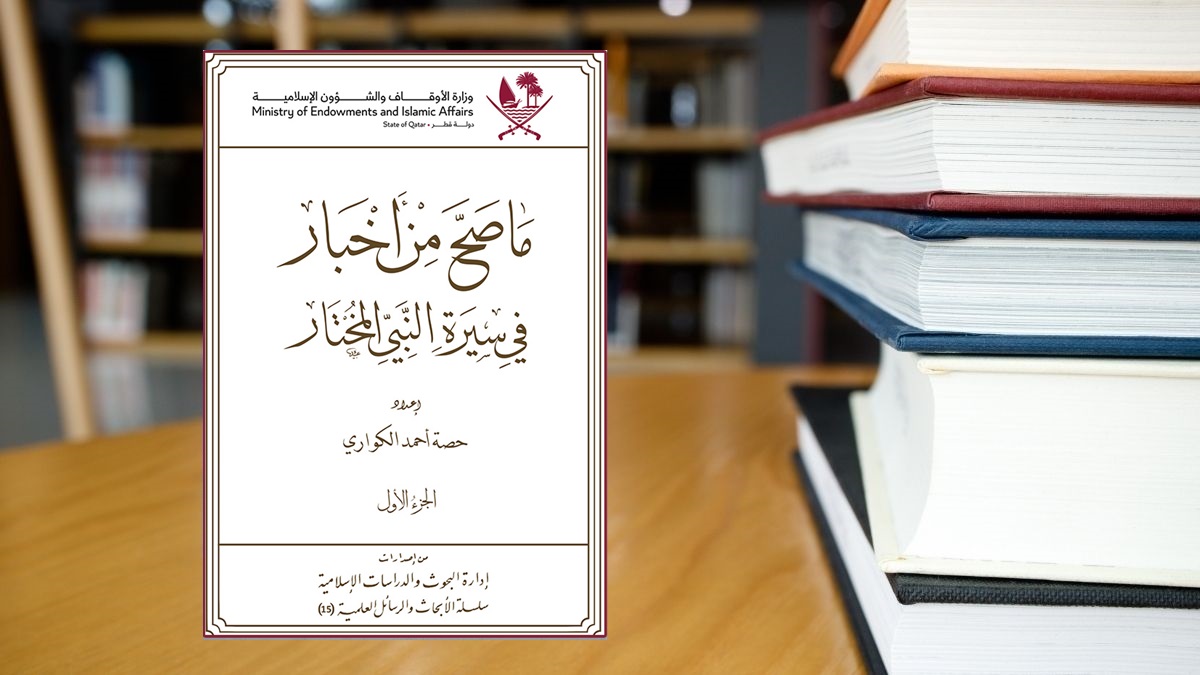 وزارة الأوقــــاف والشــــؤون الإسلاميــــة
Ministry of Endowments and Islamic Affairs
State of Qatar • دولــة قطــر
مَا صَحَّ مِنْ أَخْبَار
فِي سِيرَةِ النَّبِيِّ المُخْتَار ﷺ
إعداد
حصة أحمد الكواري
الجزءُ الأول
من إصدارات
إدارة البحوث والدراسات الإسلامية
سلسلة الأبحاث والرسائل العلمية (15)